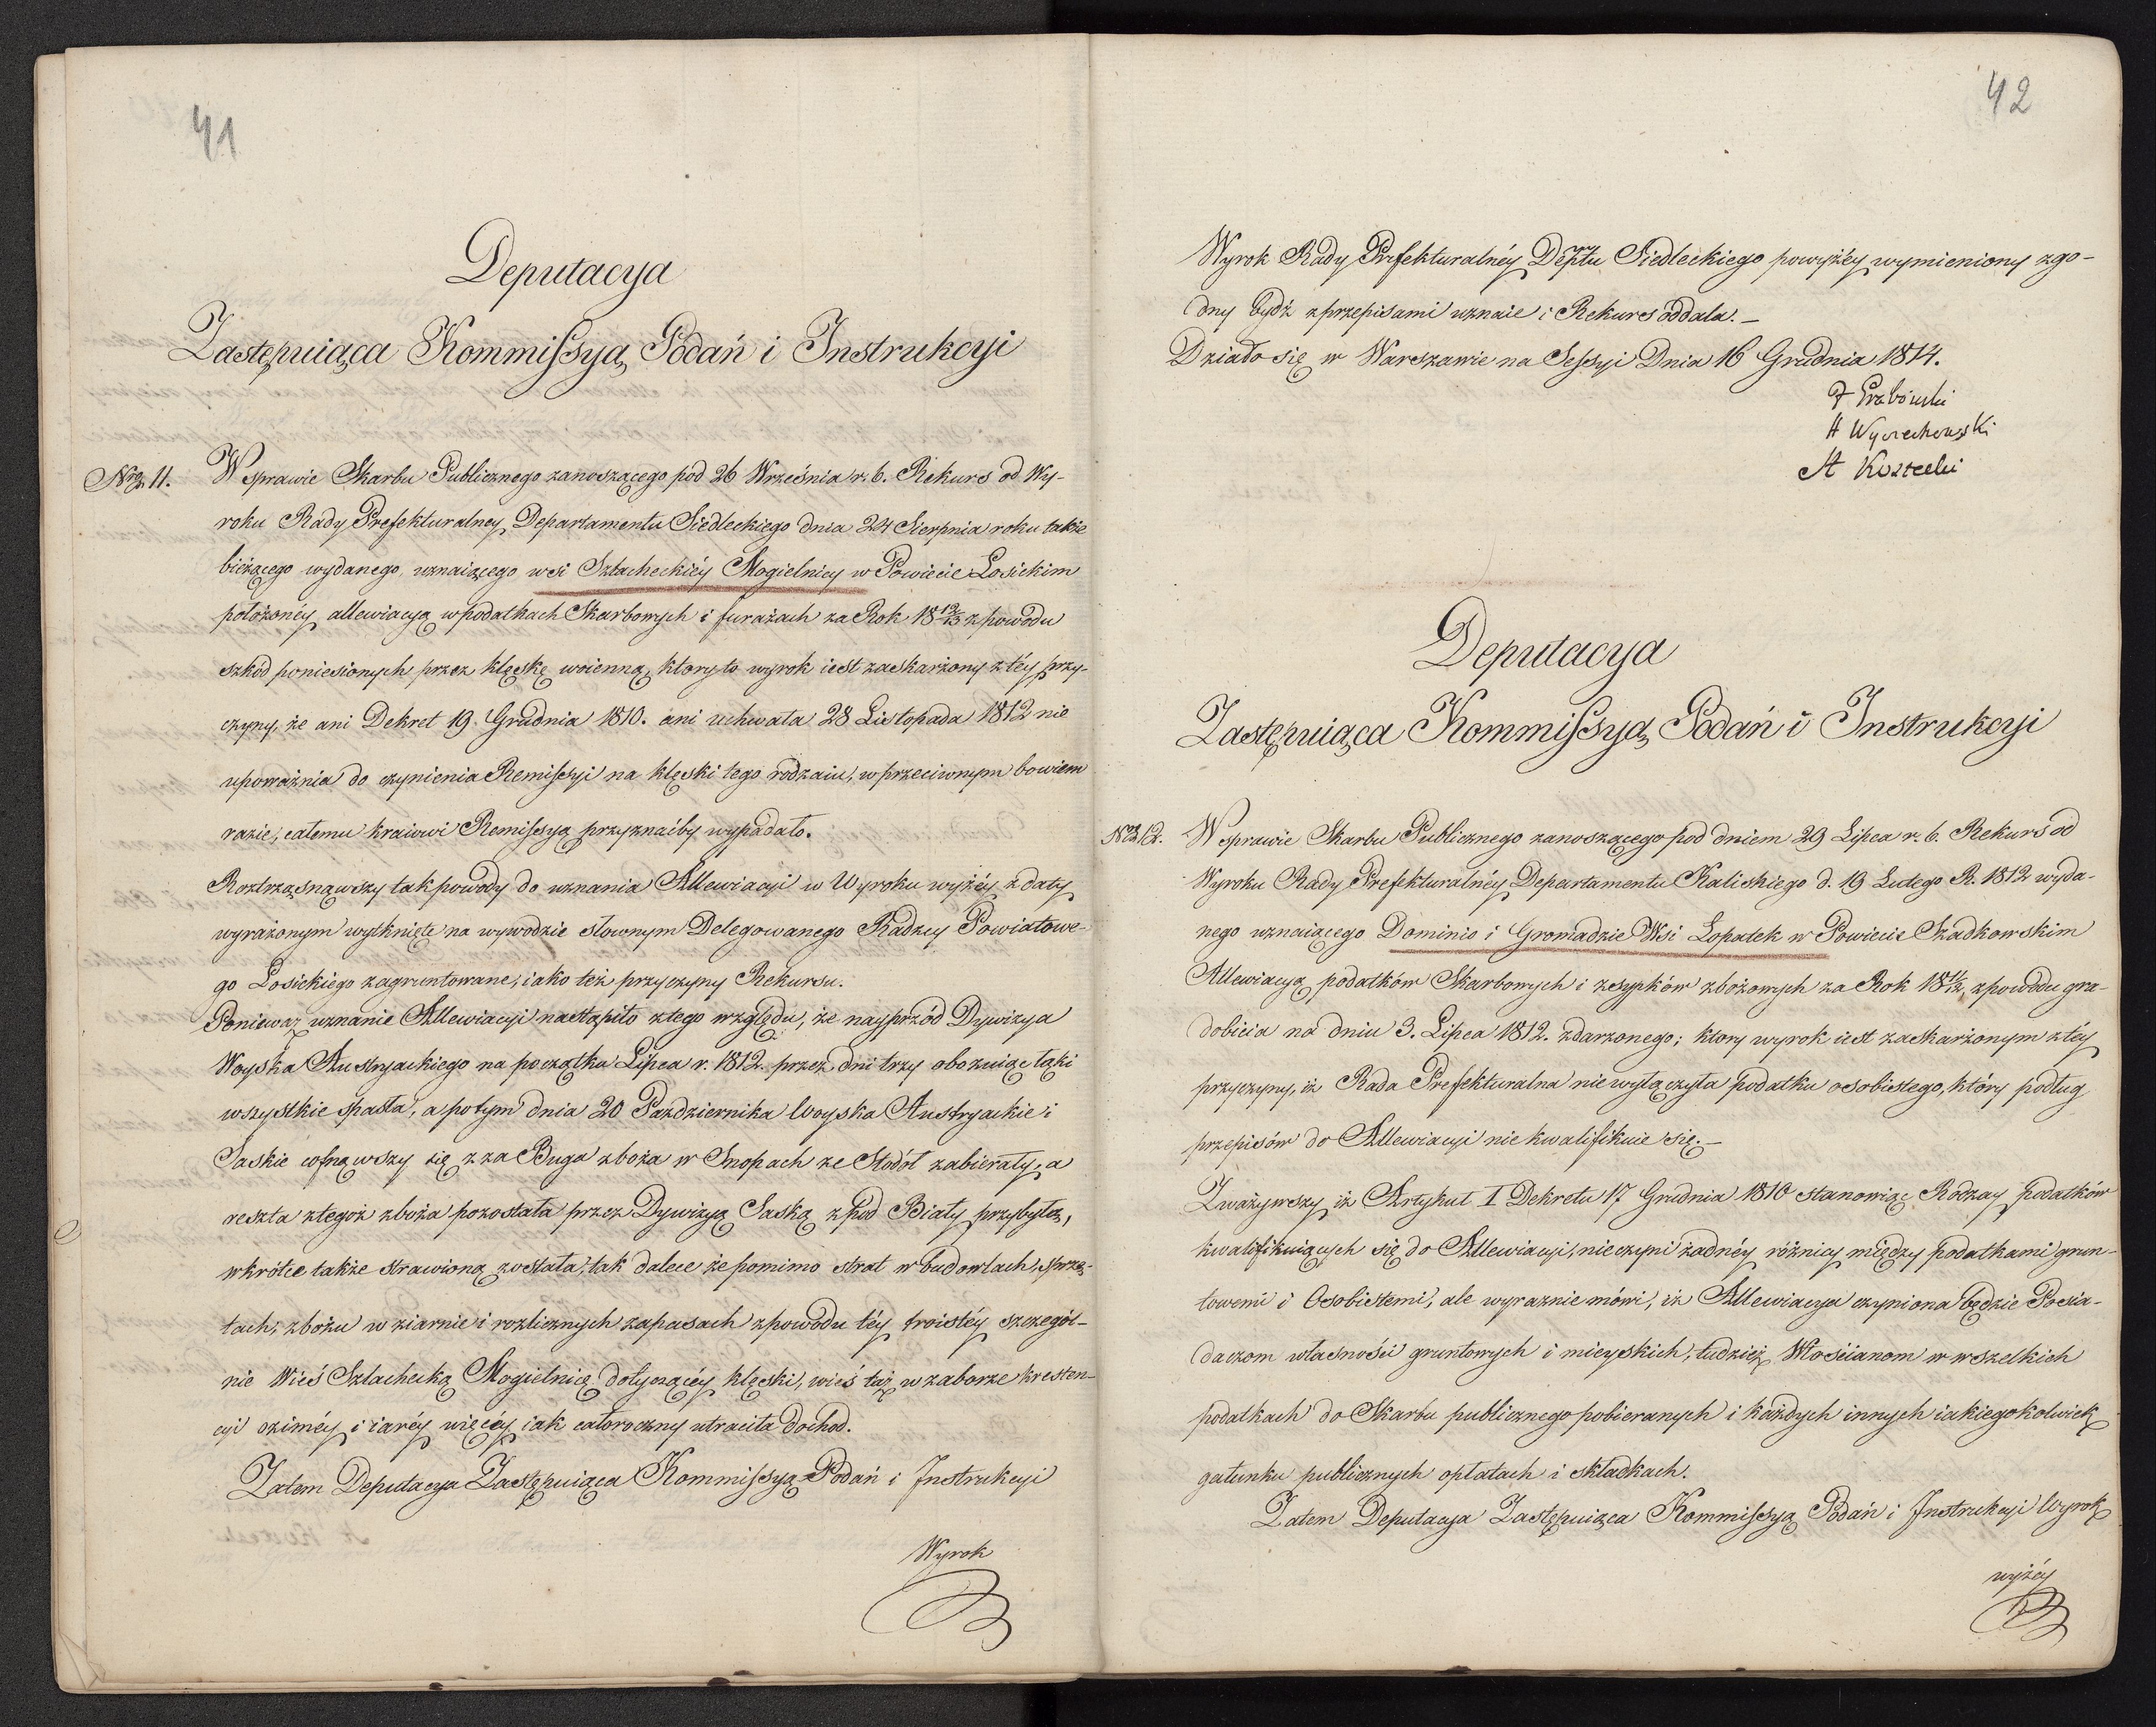 41
Deputacya
Zastępuiąca Kommissyą Podań i Instrukcyi
Nro 11.
W sprawie Skarbu Publicznego zanoszącego pod 26 Września r. b. Rekurs od Wy-
roku Rady Prefekturalney Departamentu Siedleckiego dnia 24 Sierpnia roku takie
bieżącego wydanego, uznaiącego wsi Szlacheckiéy Mogielnicy w Powiecie Łosickim
położonéy allewiacyą w podatkach Skarbowych i furażach za Rok 18 12/13 z powodu
szkód poniesionych przez klęskę woienną, który to wyrok iest zaskarżony z téy przy-
czyny, że ani Dekret 19. Grudnia 1810. ani uchwała 28 Listopada 1812 nie
upoważnia do czynienia Remissyi na klęski tego rodzaiu, w przeciwnym bowiem
razie, całemu kraiowi Remissyą przyznaiby wypadało.
Roztrząsnąwszy tak powody do uznania Allewiacyi w Wyroku wyżéy z daty
wyrażonym wytknięte na wywodzie słownym Delegowanego Radzcy Powiatowe-
go Łosickiego zagruntowane, iako też przyczyny Rekursu.
Ponieważ uznanie Allewiacyi nastąpiło z tego względu, że nayprzód Dywizya
Woyska Austryackiego na początku Lipca r. 1812. przez dni trzy obozuiąc łąki
wszystkie spasła, a potym dnia 20 Października Woyska Austryackie i
Saskie cofnąwszy się z za Buga zboża w Snopach ze Stodół zabierały, a
reszta z tegoż zboża pozostała przez Dywizyą Saską z pod Biały przybyłą,
wkrótce także strawioną została, tak dalece że pomimo strat w budowlach, sprzę-
tach, zbożu w ziarnie i rozlicznych zapasach z powodu téy troistéy szczegól-
nie Wieś Szlachecką Mogielnicę dotyczącéy klęski, wieś taż w zaborze kresten-
cyi oziméy i iaréy więcéy iak całoroczny utraciła dochod.
Zatem Deputacya Zastępuiąca Kommissyą Podań i Instrukcyi
Wyrok
42
Wyrok Rady Prefekturalnéy Deptu Siedleckiego powyżéy wymieniony zgo-
dny bydź z przepisami uznaie i Rekurs oddala.—
Działo się w Warszawie na Sessyi Dnia 16 Grudnia 1814.
Grabowski
A Kozecki
Deputacya
Zastępuiąca Kommissyą Podań i Instrukcyi
Nro 12.
W sprawie Skarbu Publicznego zanoszącego pod dniem 29 Lipca r. b. Rekurs od
Wyroku Rady Prefekturalnéy Departamentu Kaliskiego d. 19 Lutego R. 1812 wyda-
nego uznaiącego Dominio i Gromadzie Wsi Łopatek w Powiecie Szadkowskim
Allewiacyą podatków Skarbowych i zsypków zbożowych za Rok 18 11/12, z powodu gra-
dobicia na dniu 3. Lipca 1812. zdarzonego; ktory wyrok iest zaskarżonym z téy
przyczyny, iż Rada Prefekturalna nie wyłączyła podatku osobistego, który podług
przepisów do Allewiacyi nie kwalifikuie się.—
Zważywszy iż Artykuł I Dekretu 17 Grudnia 1810 stanowiąc Rodzay podatków
kwalifikuiących się do Allewiacyi, nie czyni żadnéy różnicy między podatkami grun-
towemi i Osobistemi, ale wyraznie mówi, iż Allewiacya czyniona będzie Posia-
daczom własności gruntowych i mieyskich, tudzież Włościanom w wszelkich
podatkach do Skarbu publicznego pobieranych i każdych innych iakiegokolwiek
gatunku publicznych opłatach i składkach.
Zatem Deputacya Zastępuiąca Kommissyą Podań i Instrukcyi Wyrok
wyżéy